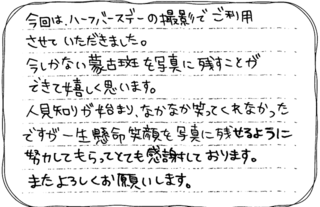 今回は、ハーフバースデーの撮影でご利用
させていただきました。
今しかない蒙古斑を写真に残すことが
できて嬉しく思います。
人見知りが始まり、なかなか笑ってくれなかった
ですが一生懸命笑顔を写真に残せるように
努力してもらってとても感謝しております。
またよろしくお願いします。